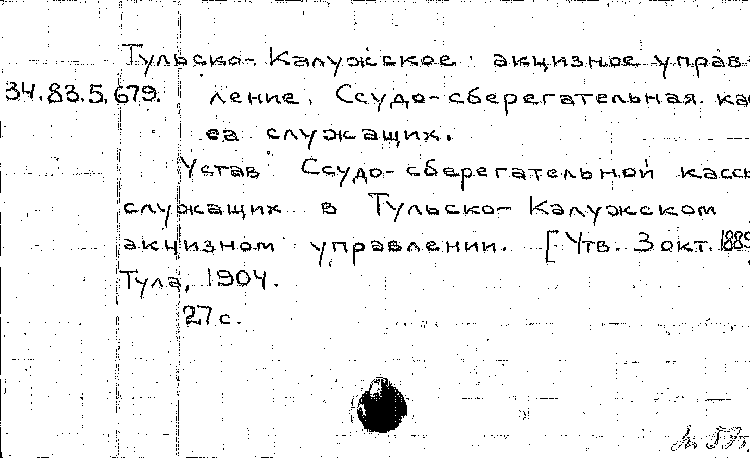 Тульско-Калужское акцизное управ-
34.83.5.679. ление. Ссудо-сберегательная кас
са служащих.
Устав Ссудо-сберегательной кассы
служащих в Тульско-Калужском
акцизном управлении. [Утв. 3 окт. 1889
Тула, 1904.
27 с.